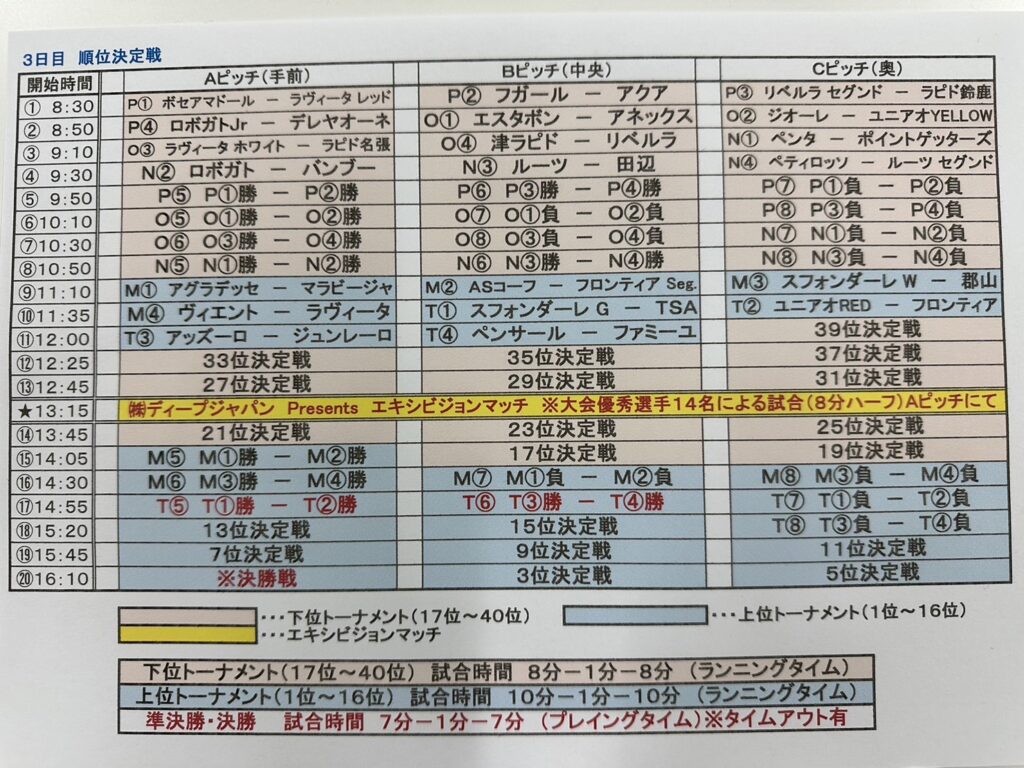 3日目 順位決定戦
開始時間 Aピッチ(手前) Bピッチ(中央) Cピッチ(奥)
① 8:30 P① ボセアマドール － ラヴィータ レッド P② フガール － アクア P③ リベルラ セグンド － ラピド鈴鹿
② 8:50 P④ ロボガトJr － デレヤオーネ O① エスタボン － アネックス O② ジオーレ － ユニアオYELLOW
③ 9:10 O③ ラヴィータ ホワイト － ラピド名張 O④ 津ラピド － リベルラ N① ペンタ － ポイントゲッターズ
④ 9:30 N② ロボガト － バンブー N③ ルーツ － 田辺 N④ ペティロッソ － ルーツ セグンド
⑤ 9:50 P⑤ P①勝 － P②勝 P⑥ P③勝 － P④勝 P⑦ P①負 － P②負
⑥10:10 O⑤ O①勝 － O②勝 O⑦ O①負 － O②負 P⑧ P③負 － P④負
⑦10:30 O⑥ O③勝 － O④勝 O⑧ O③負 － O④負 N⑦ N①負 － N②負
⑧10:50 N⑤ N①勝 － N②勝 N⑥ N③勝 － N④勝 N⑧ N③負 － N④負
⑨11:10 M① アグラデッセ － マラビージャ M② ASコーフ － フロンティア Seg. M③ スフォンダーレ W － 郡山
⑩11:35 M④ ヴィエント － ラヴィータ T① スフォンダーレ G － TSA T② ユニアオRED － フロンティア
⑪12:00 T③ アッズーロ － ジュンレーロ T④ ペンサール － ファミーユ 39位決定戦
⑫12:25 33位決定戦 35位決定戦 37位決定戦
⑬12:45 27位決定戦 29位決定戦 31位決定戦
★13:15 ㈱ディープジャパン Presents エキシビジョンマッチ ※大会優秀選手14名による試合(8分ハーフ)Aピッチにて
⑭13:45 21位決定戦 23位決定戦 25位決定戦
⑮14:05 M⑤ M①勝 － M②勝 17位決定戦 19位決定戦
⑯14:30 M⑥ M③勝 － M④勝 M⑦ M①負 － M②負 M⑧ M③負 － M④負
⑰14:55 T⑤ T①勝 － T②勝 T⑥ T③勝 － T④勝 T⑦ T①負 － T②負
⑱15:20 13位決定戦 15位決定戦 T⑧ T③負 － T④負
⑲15:45 7位決定戦 9位決定戦 11位決定戦
⑳16:10 ※決勝戦 3位決定戦 5位決定戦
･･･下位トーナメント(17位～40位) ･･･上位トーナメント(1位～16位)
･･･エキシビジョンマッチ
下位トーナメント(17位～40位) 試合時間 8分－1分－8分 (ランニングタイム)
上位トーナメント(1位～16位) 試合時間 10分－1分－10分 (ランニングタイム)
準決勝・決勝 試合時間 7分－1分－7分 (プレイングタイム)※タイムアウト有